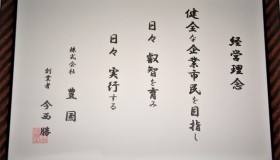 経営理念
健全な企業市民を目指し
日々 叡智を育み
日々 実行する
株式会社 豊国
創業者 今西 勝